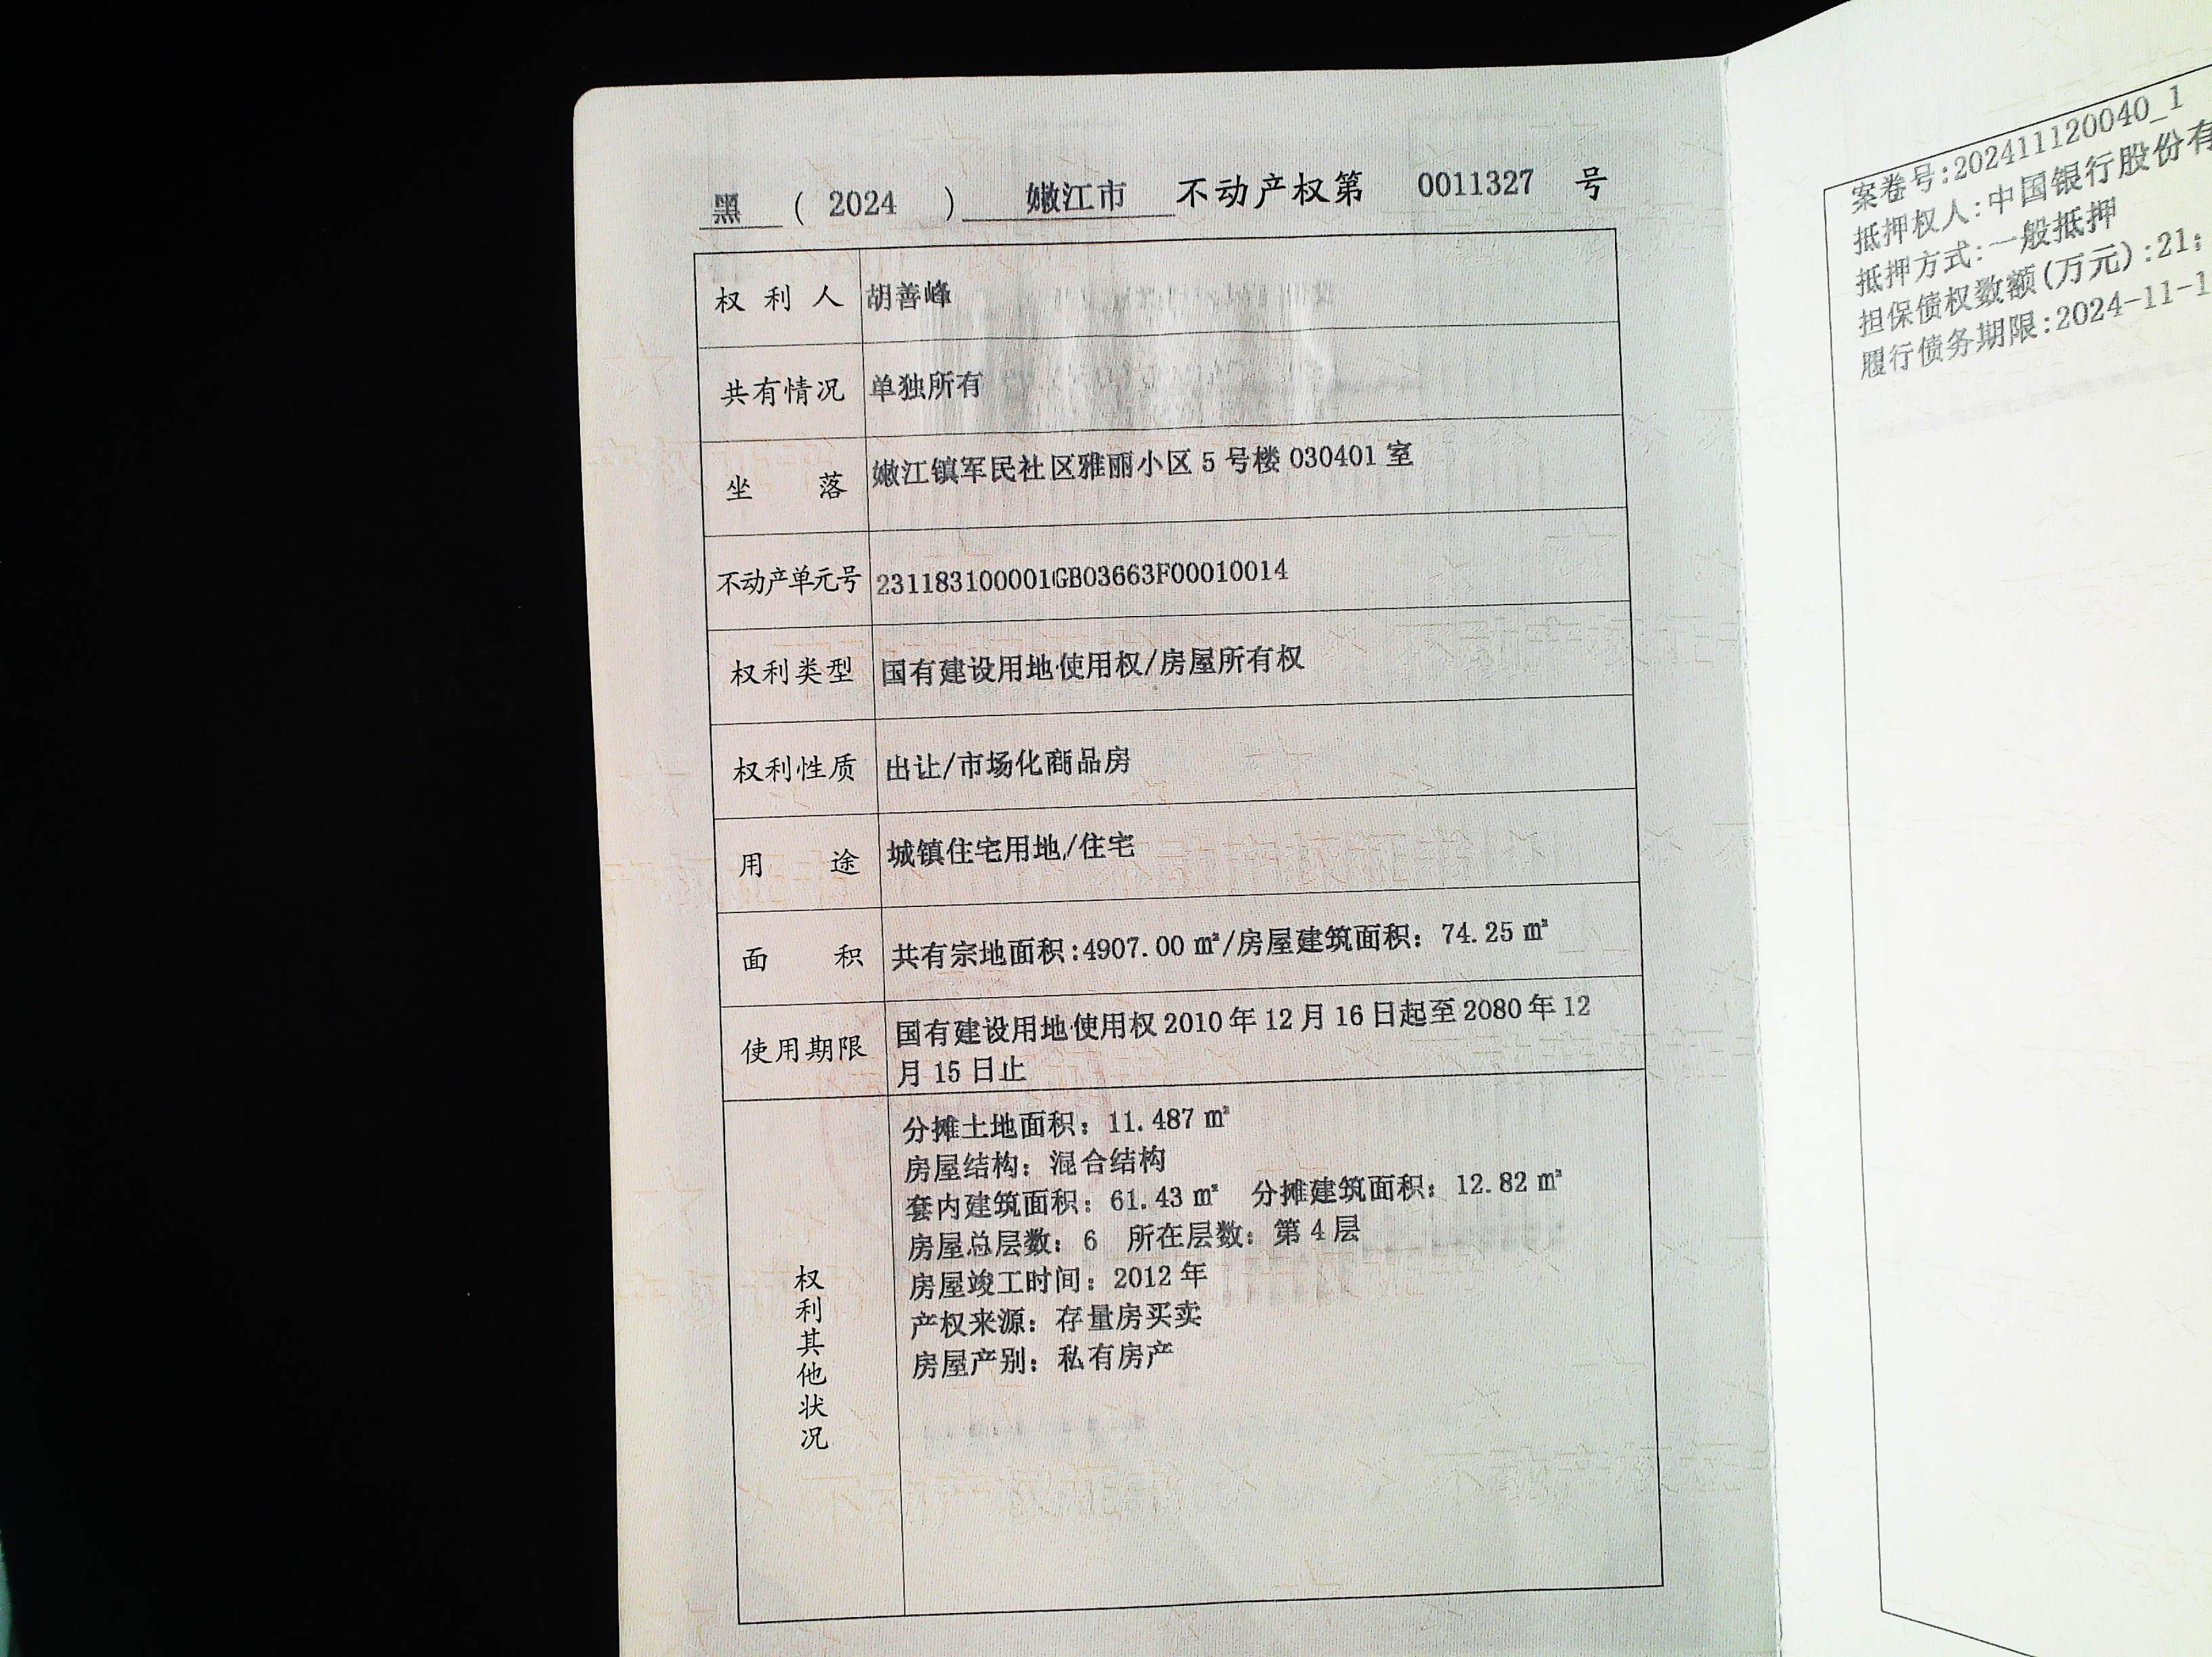 黑 ( 2024 ) 嫩江市 不动产权第 0011327 号
权利人 胡善峰
共有情况 单独所有
坐落 嫩江镇军民社区雅丽小区 5 号楼 030401 室
不动产单元号 231183100001GB03663F00010014
权利类型 国有建设用地使用权/房屋所有权
权利性质 出让/市场化商品房
用途 城镇住宅用地/住宅
面积 共有宗地面积:4907.00 ㎡/房屋建筑面积：74.25 ㎡
使用期限 国有建设用地使用权 2010 年 12 月 16 日起至 2080 年 12
月 15 日止
权利其他状况
分摊土地面积：11.487 ㎡
房屋结构：混合结构
套内建筑面积：61.43 ㎡ 分摊建筑面积：12.82 ㎡
房屋总层数：6 所在层数：第 4 层
房屋竣工时间：2012 年
产权来源：存量房买卖
房屋产别：私有房产
案卷号:202411120040_1
抵押权人:中国银行股份有
抵押方式:一般抵押
担保债权数额(万元):21;
履行债务期限:2024-11-1